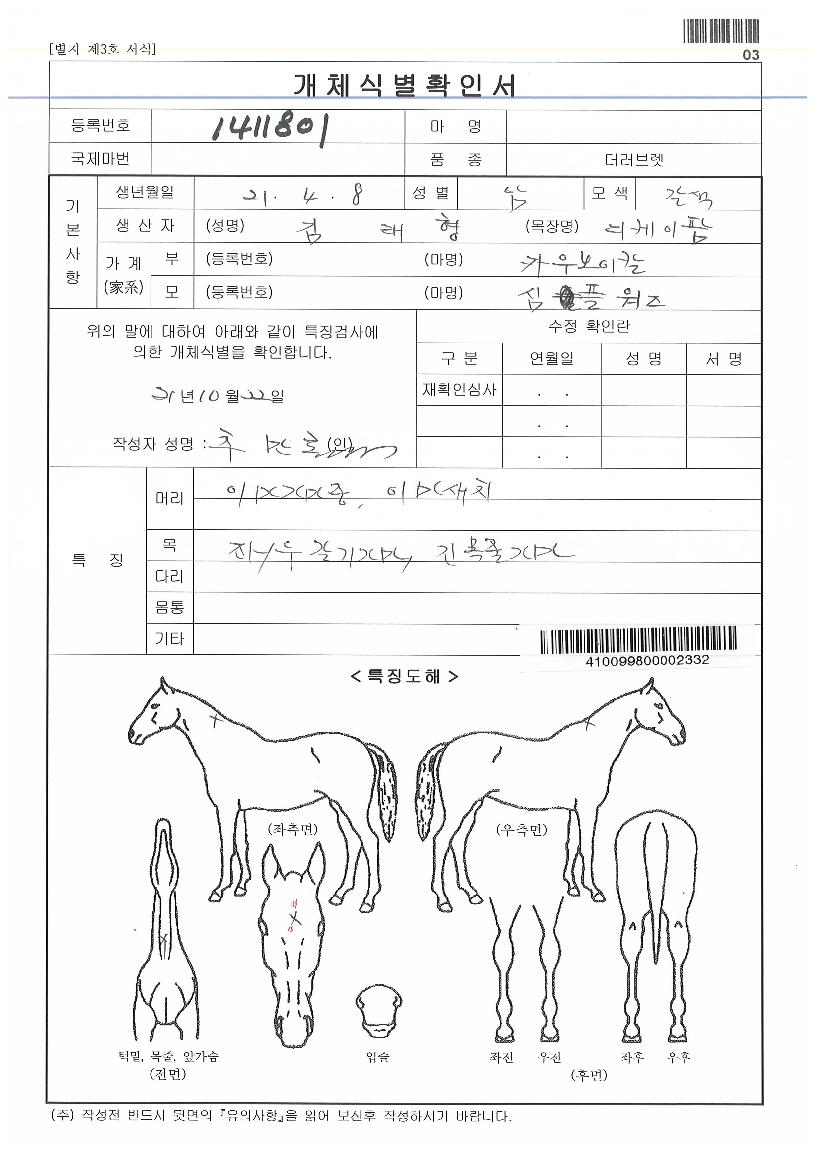 [별지 제3호 서식]
03
개체식별확인서
등록번호 1411801 마 명
국제마번 품 종 더러브렛
기본사항
생년월일 21. 4. 8 성 별 암 모 색 갈색
생 산 자 (성명) 김 태 형 (목장명) 티케이팜
가 계 (家系)
부 (등록번호) (마명) 카우보이칼
모 (등록번호) (마명) 심플 워즈
위의 말에 대하여 아래와 같이 특징검사에
의한 개체식별을 확인합니다.
21년 10월 22일
작성자 성명 : (인)
수정 확인란
구 분 연월일 성 명 서 명
재확인심사 . .
. .
. .
특 징
머리
목
다리
몸통
기타
410099800002332
< 특징도해 >
(좌측면) (우측면)
턱밑, 목줄, 앞가슴
(전면)
입술
좌전 우전 좌후 우후
(후면)
(주) 작성전 반드시 뒷면의 『유의사항』을 읽어 보신후 작성하시기 바랍니다.